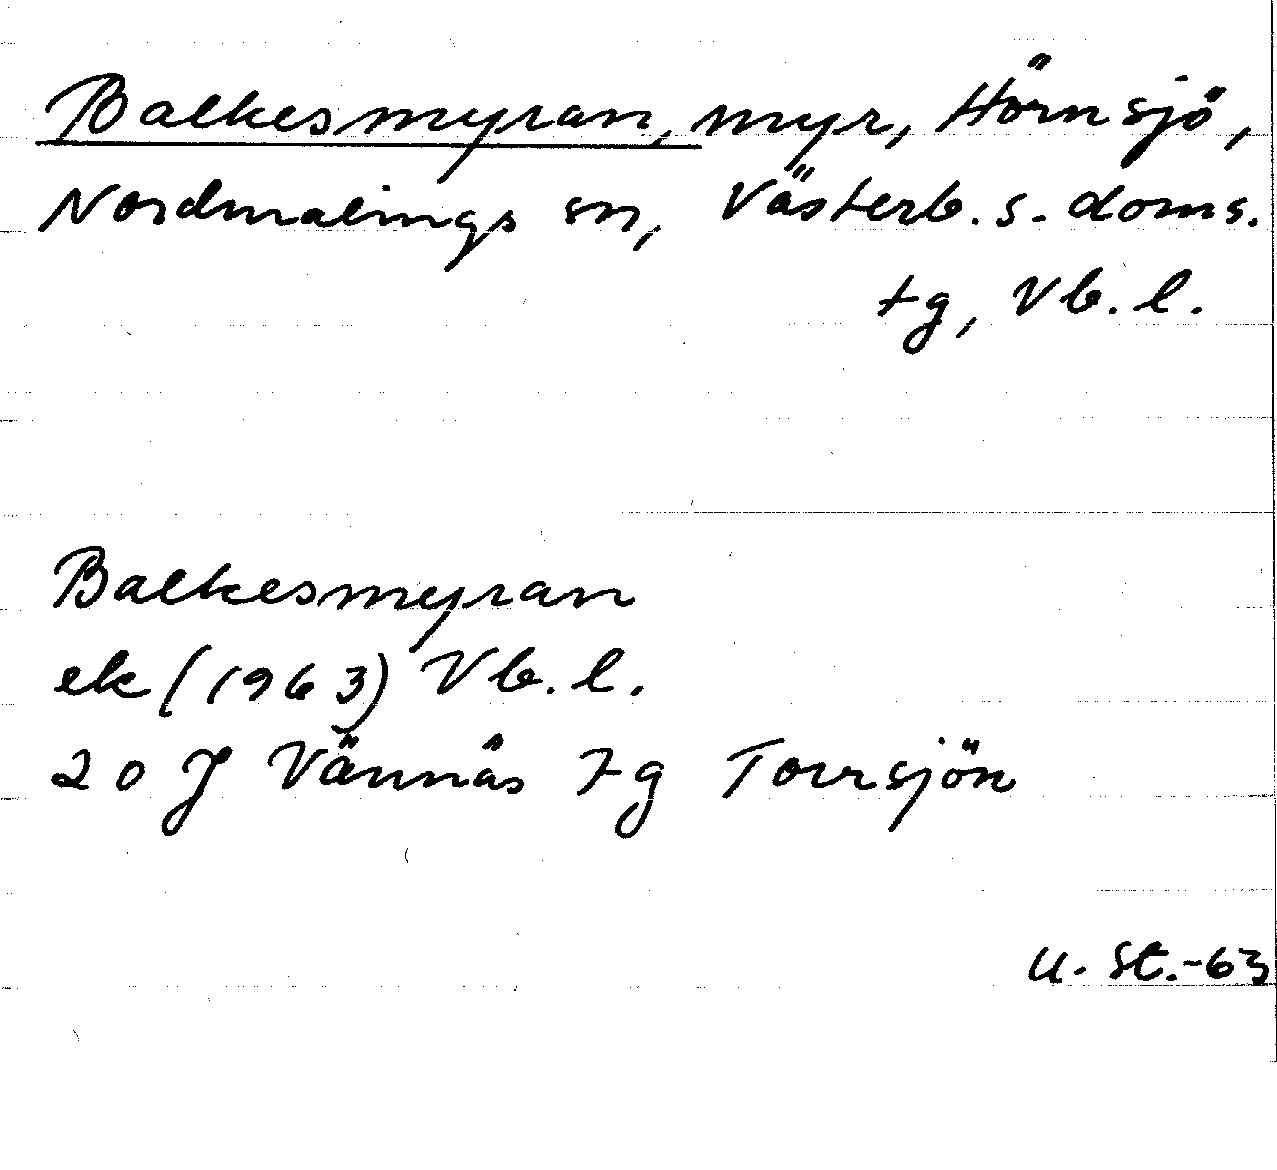 Balkesmyran, myr, Hörnsjö,
Nordmalings sn, Västerb. s. doms.
tg, Vb. l.
Balkesmyran
ek (1963) Vb. l.
20 J Vännäs tg Torrsjön
U. St.-63